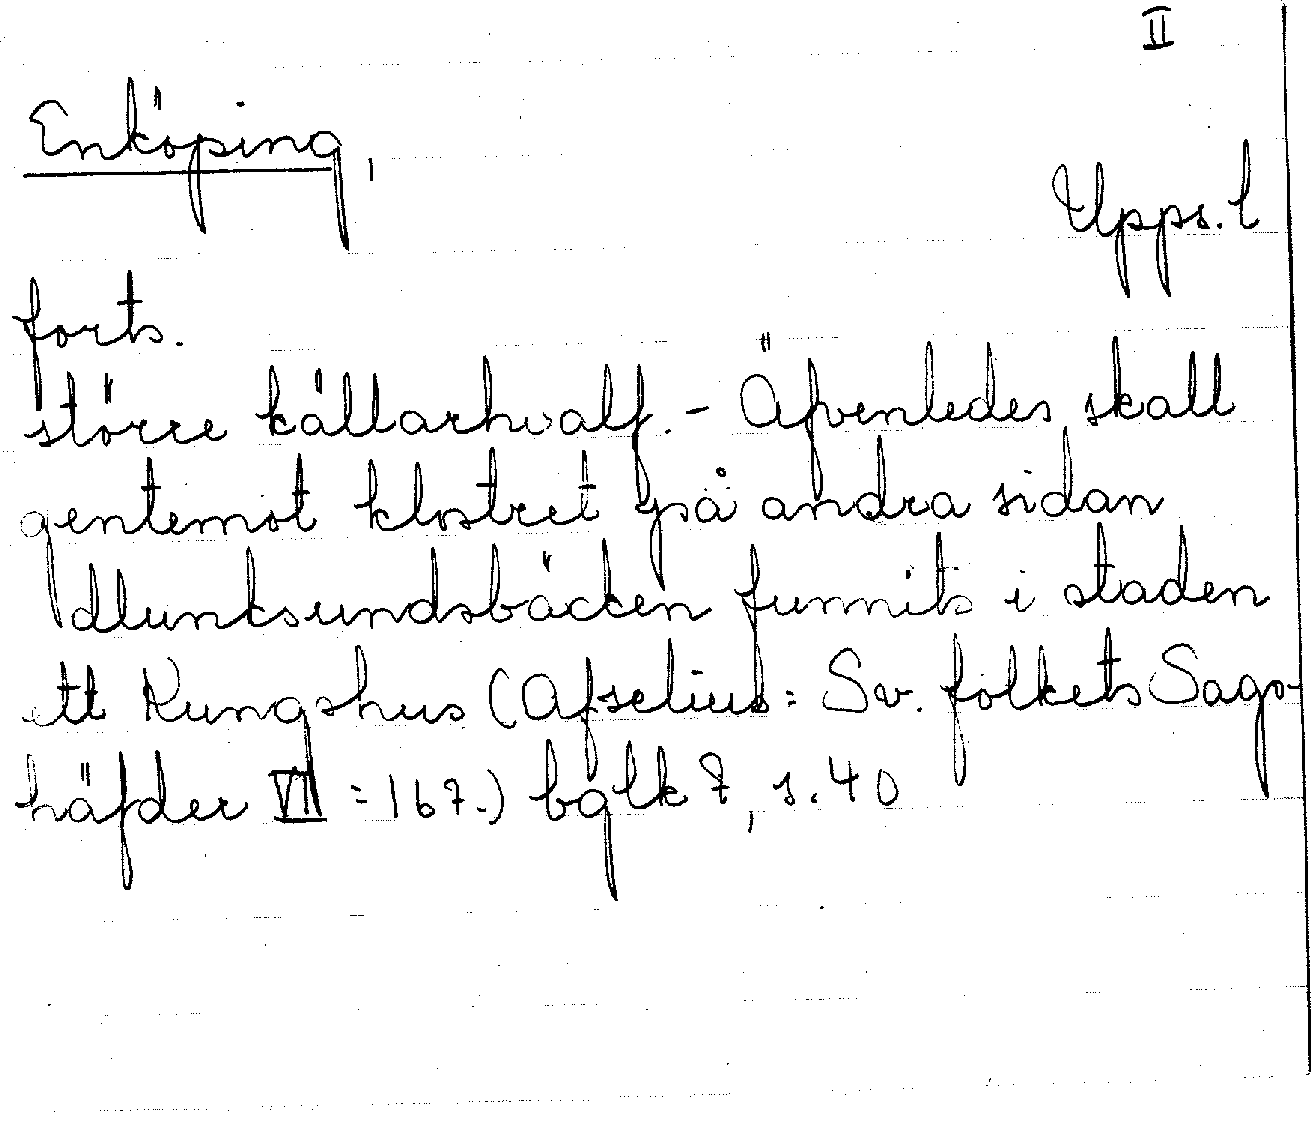 II
Enköping,
Upps. l
forts.
större källarhvalf. - Äfvenledes skall
gentemot klostret på andra sidan
dlunksundsbäcken funnits i staden
ett Kungshus (Afzelius: Sv. folkets Sago-
häfder VII = 167.) bglk 7, s. 40